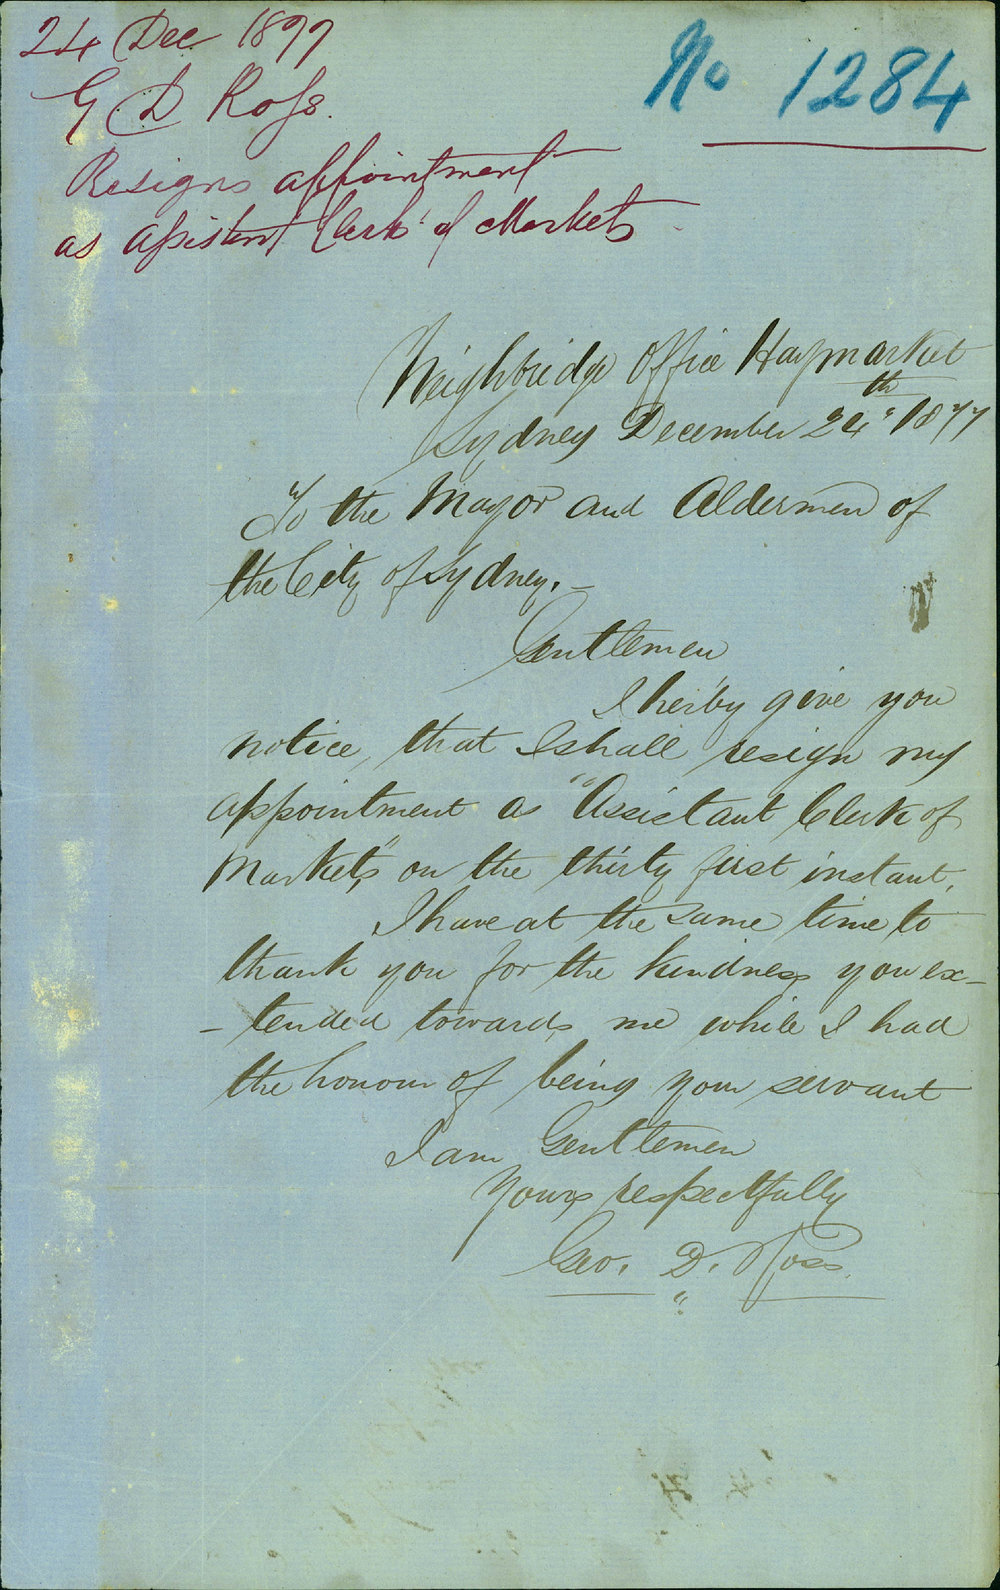 24 Dec 1877
G D Ross.
Resigns appointment
as assistant Clerk of Markets
No 1284
Weighbridge Office Haymarket
Sydney December 24th 1877
To the Mayor and Aldermen of
the City of Sydney.—
Gentlemen
I herby give you
notice, that I shall resign my
appointment as "Assistant Clerk of
Markets" on the thirty first instant.
I have at the same time to
thank you for the kindness you ex-
-tended towards me while I had
the honour of being your servant
I am Gentlemen
Yours respectfully
Geo. D. Ross.